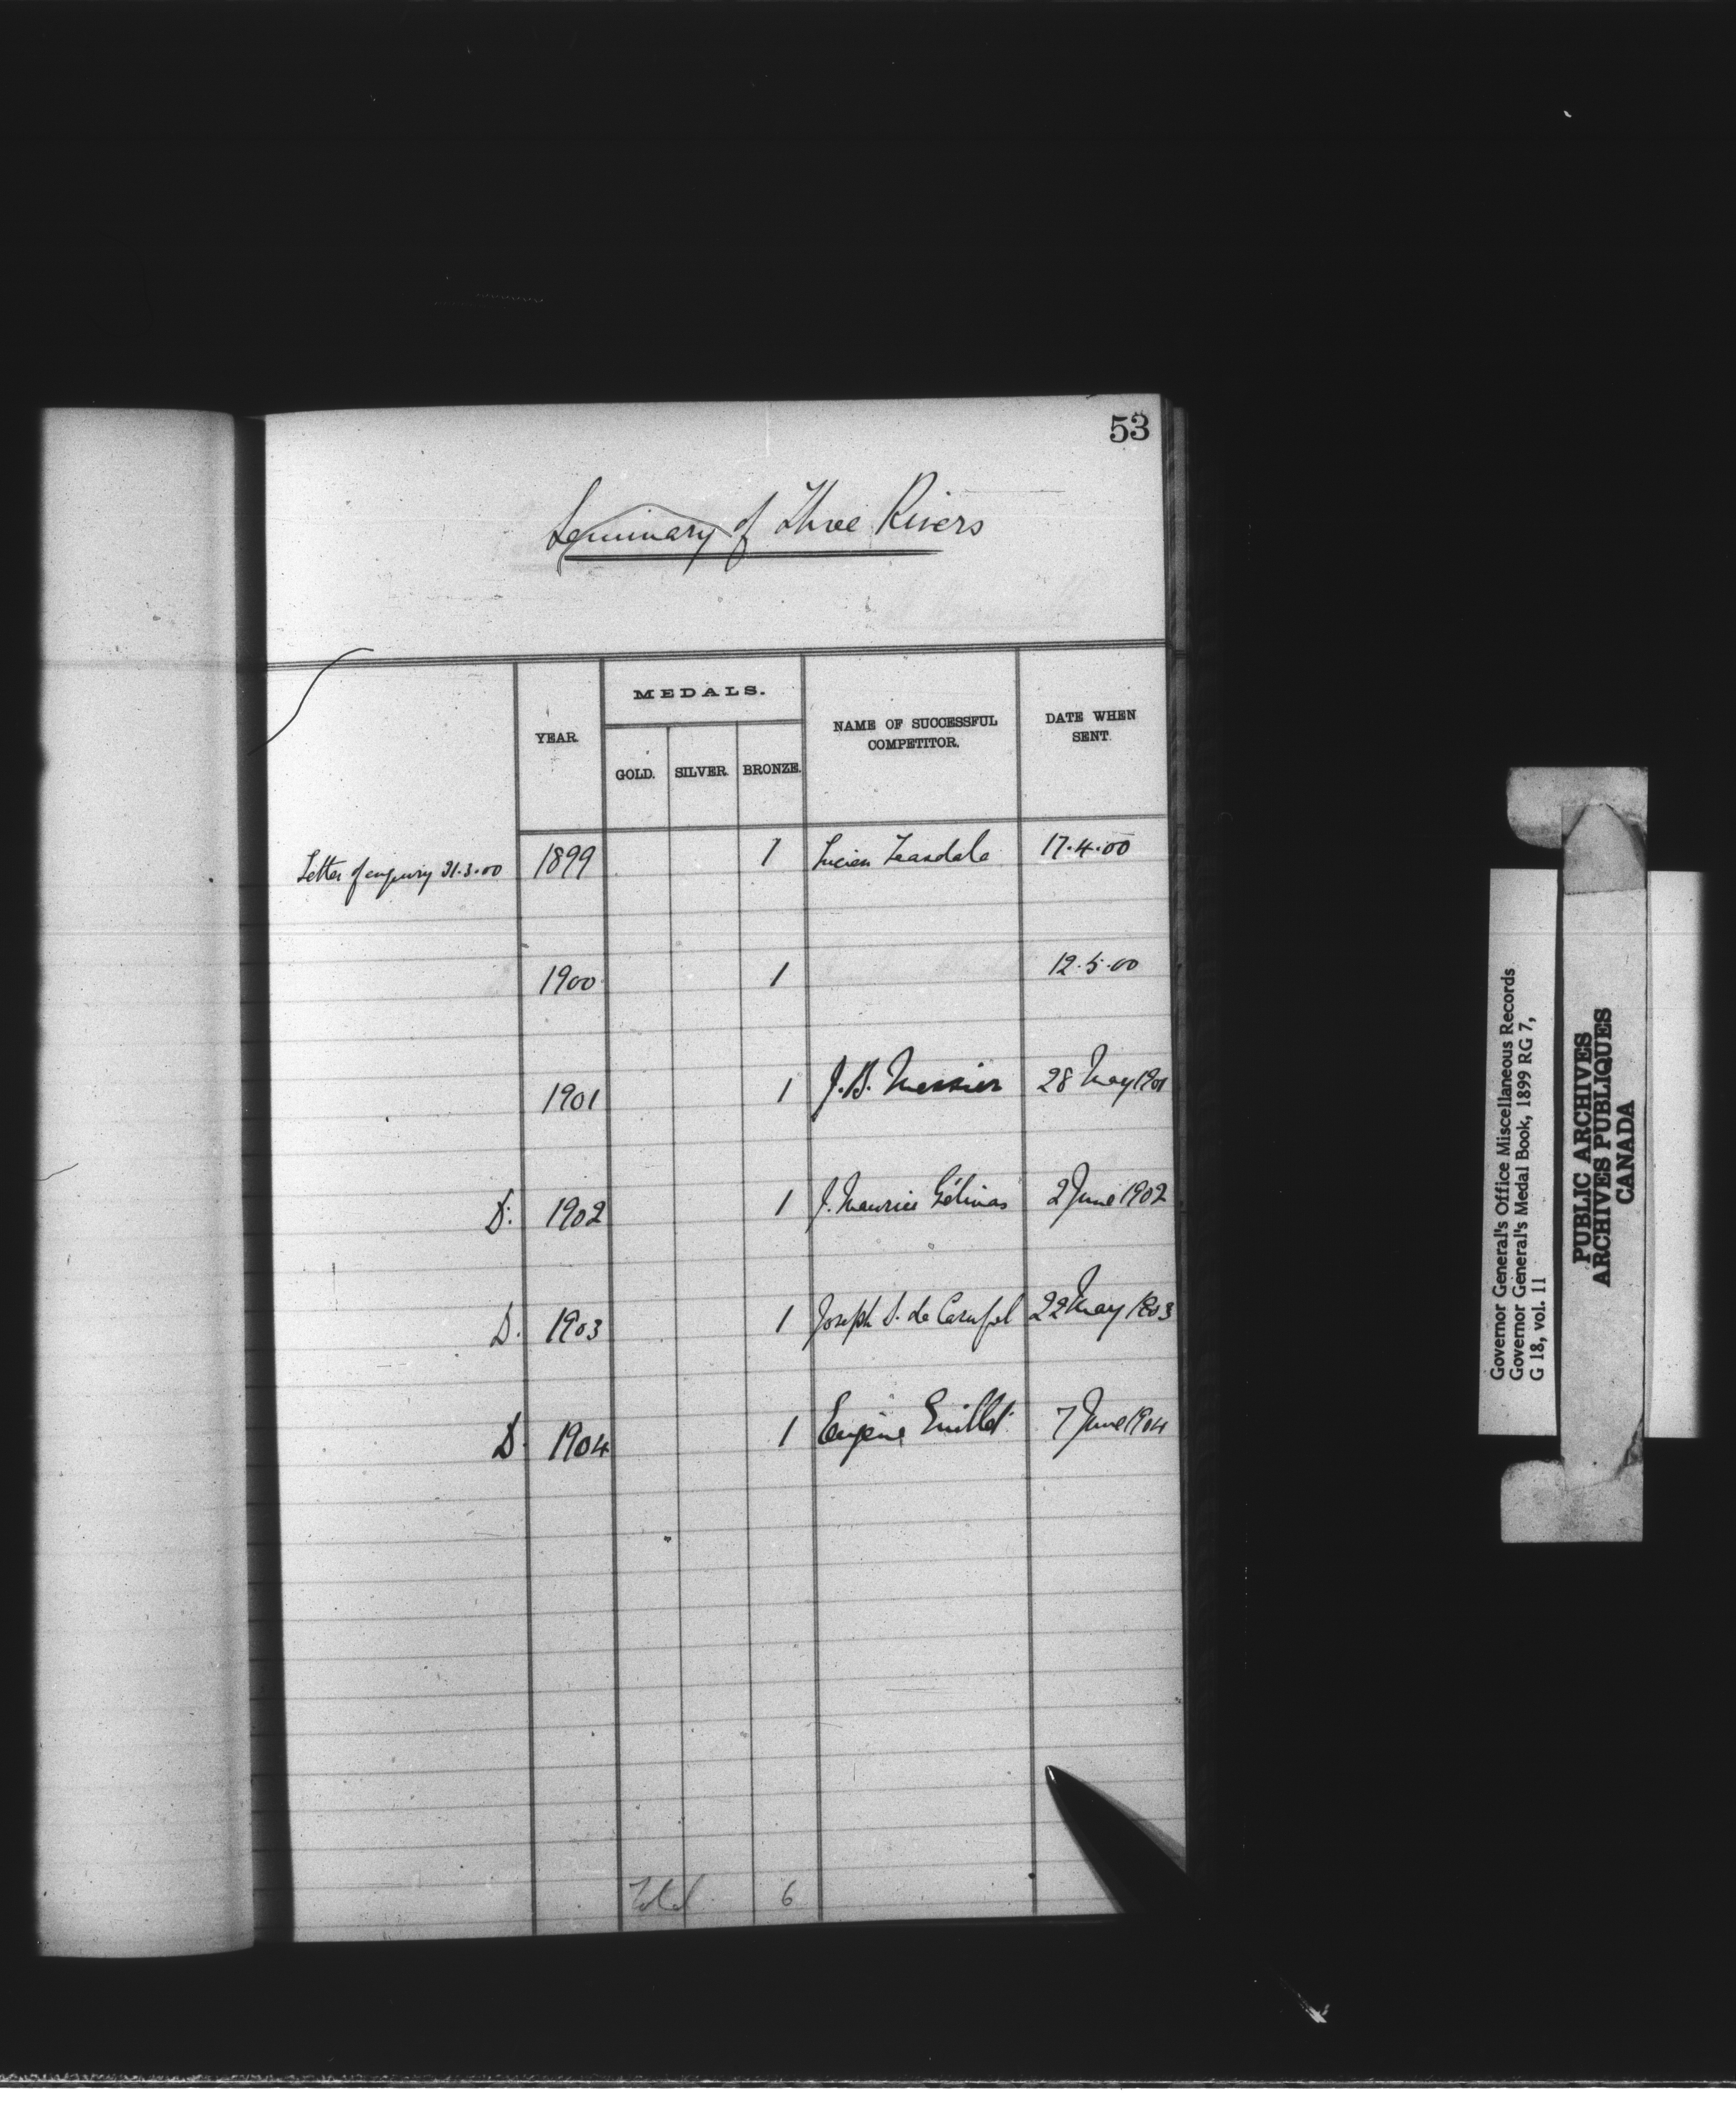 53
Seminary of Three Rivers
YEAR. MEDALS. NAME OF SUCCESSFUL COMPETITOR. DATE WHEN SENT.
GOLD. SILVER. BRONZE.
Letter of enquiry 31.3.00 1899 1 Lucien Teasdale 17.4.00
1900 1 12.5.00
1901 1 J. B. Messier 28 May 1901
D. 1902 1 J. Maurice Gélinas 2 June 1902
D. 1903 1 Joseph S. de Carufel 22 May 1903
D. 1904 1 Eugène Guillet 7 June 1904
Total 6
Governor General's Office Miscellaneous Records
Governor General's Medal Book, 1899 RG 7,
G 18, vol. 11
PUBLIC ARCHIVES
ARCHIVES PUBLIQUES
CANADA